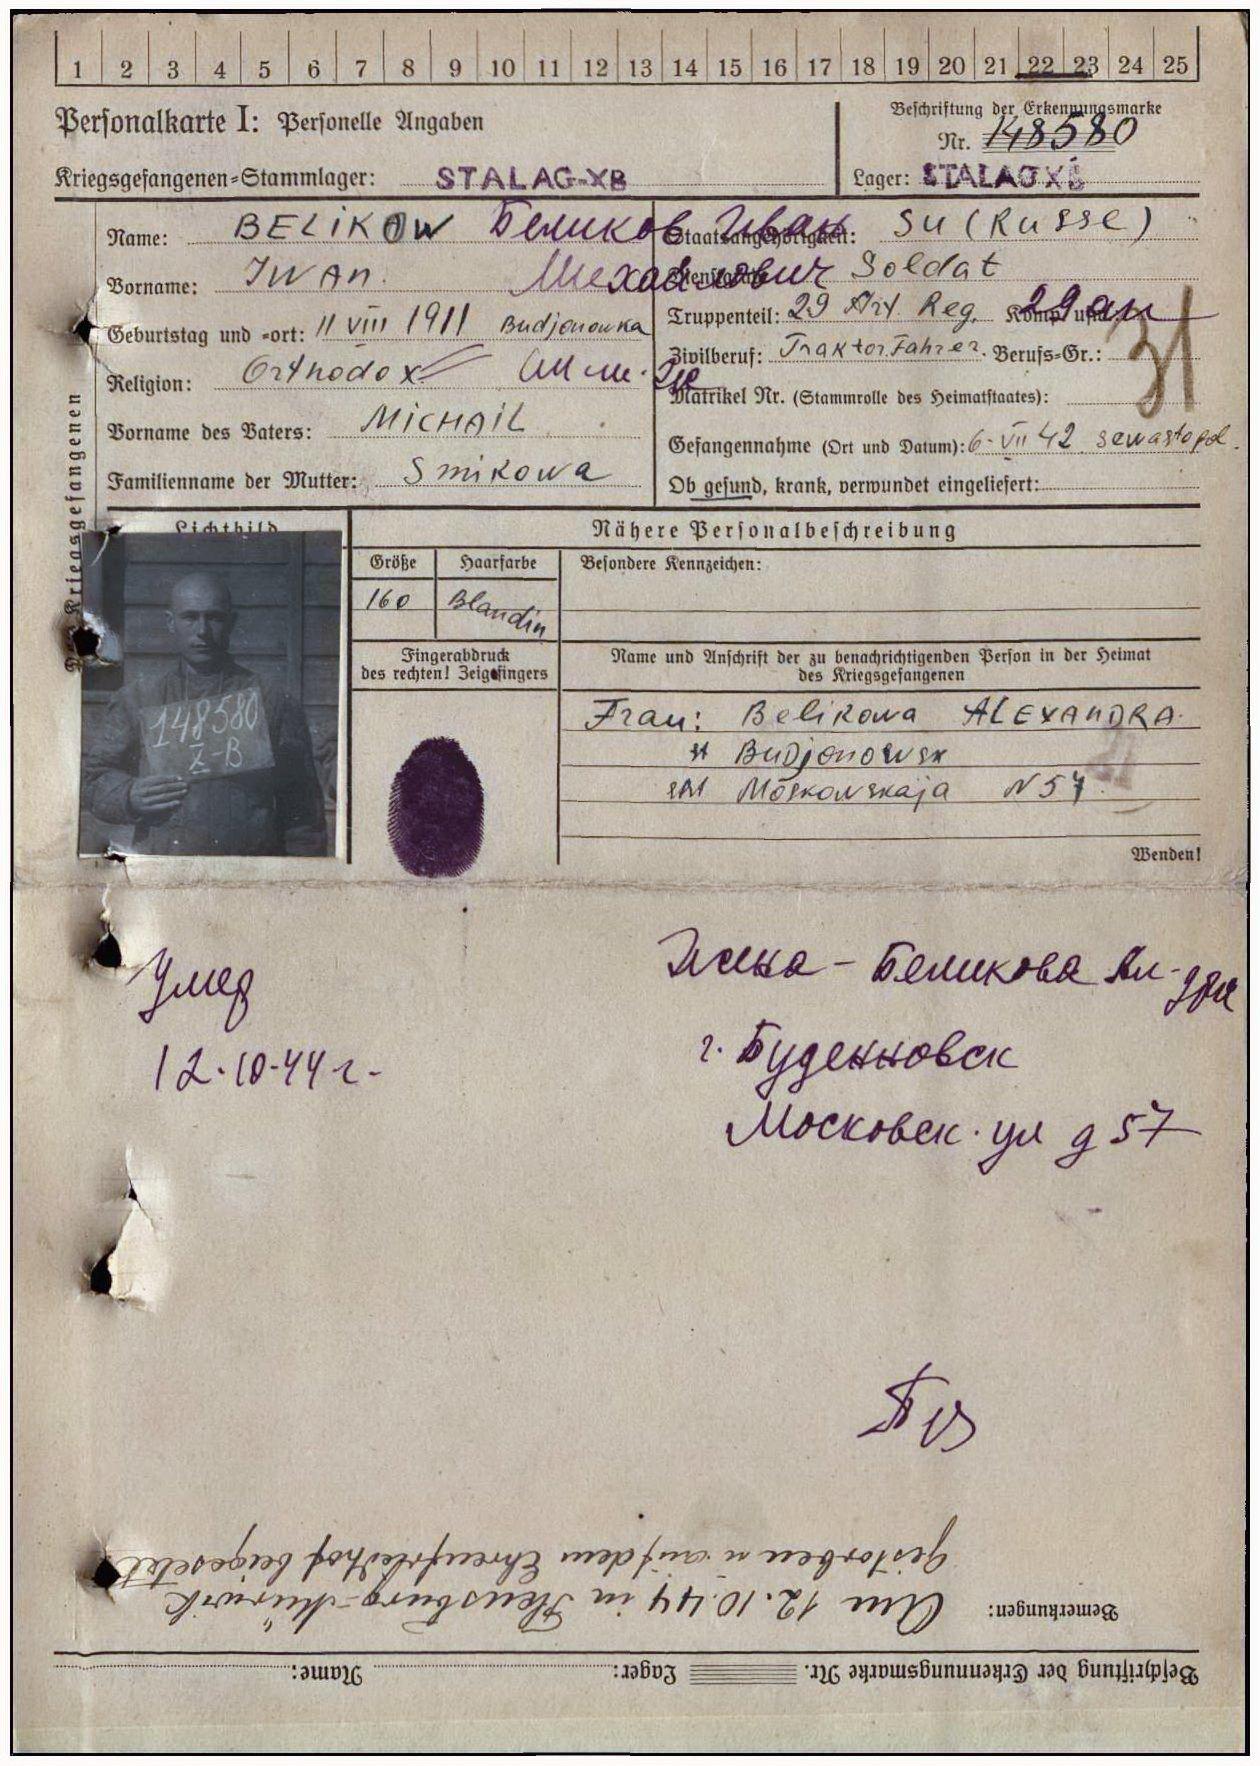 1 2 3 4 5 6 7 8 9 10 11 12 13 14 15 16 17 18 19 20 21 22 23 24 25
Personalkarte I: Personelle Angaben
Kriegsgefangenen-Stammlager: STALAG-XB
Beschriftung der Erkennungsmarke
Nr. 148580
Lager: STALAG XB
Name: BELIKOW Беликов Иван
Vorname: IWAN. Михайлович
Geburtstag und -ort: 11 VIII 1911 Budjonowka
Religion: Orthodox
Vorname des Vaters: MICHAIL
Familienname der Mutter: Smikowa
Staatsangehörigkeit: SU (Russe)
Dienstgrad: Soldat
Truppenteil: 29 Art. Reg. Komp. usw.: 29 ап
Zivilberuf: Traktorfahrer. Berufs-Gr.: 31
Matrikel Nr. (Stammrolle des Heimatstaates):
Gefangennahme (Ort und Datum): 6-VII 42 Sewastopol.
Ob gesund, krank, verwundet eingeliefert:
Des Kriegsgefangenen
Lichtbild
148580
X-B
Nähere Personalbeschreibung
Größe Haarfarbe Besondere Kennzeichen:
160 Blandin
Fingerabdruck
des rechten! Zeigefingers
Name und Anschrift der zu benachrichtigenden Person in der Heimat
des Kriegsgefangenen
Frau: Belikowa ALEXANDRA.
st Budjonowsk
Moskowskaja N 57.
Wenden!
Умер
12.10.44 г.
Жена - Беликова Ал-дра
г. Буденновск
Московск. ул д 57
Beschriftung der Erkennungsmarke Nr. Lager: Name:
Bemerkungen: Am 12.10.44 in Flensburg-Mürwik
gestorben u. auf dem Ehrenfriedhof beigesetzt